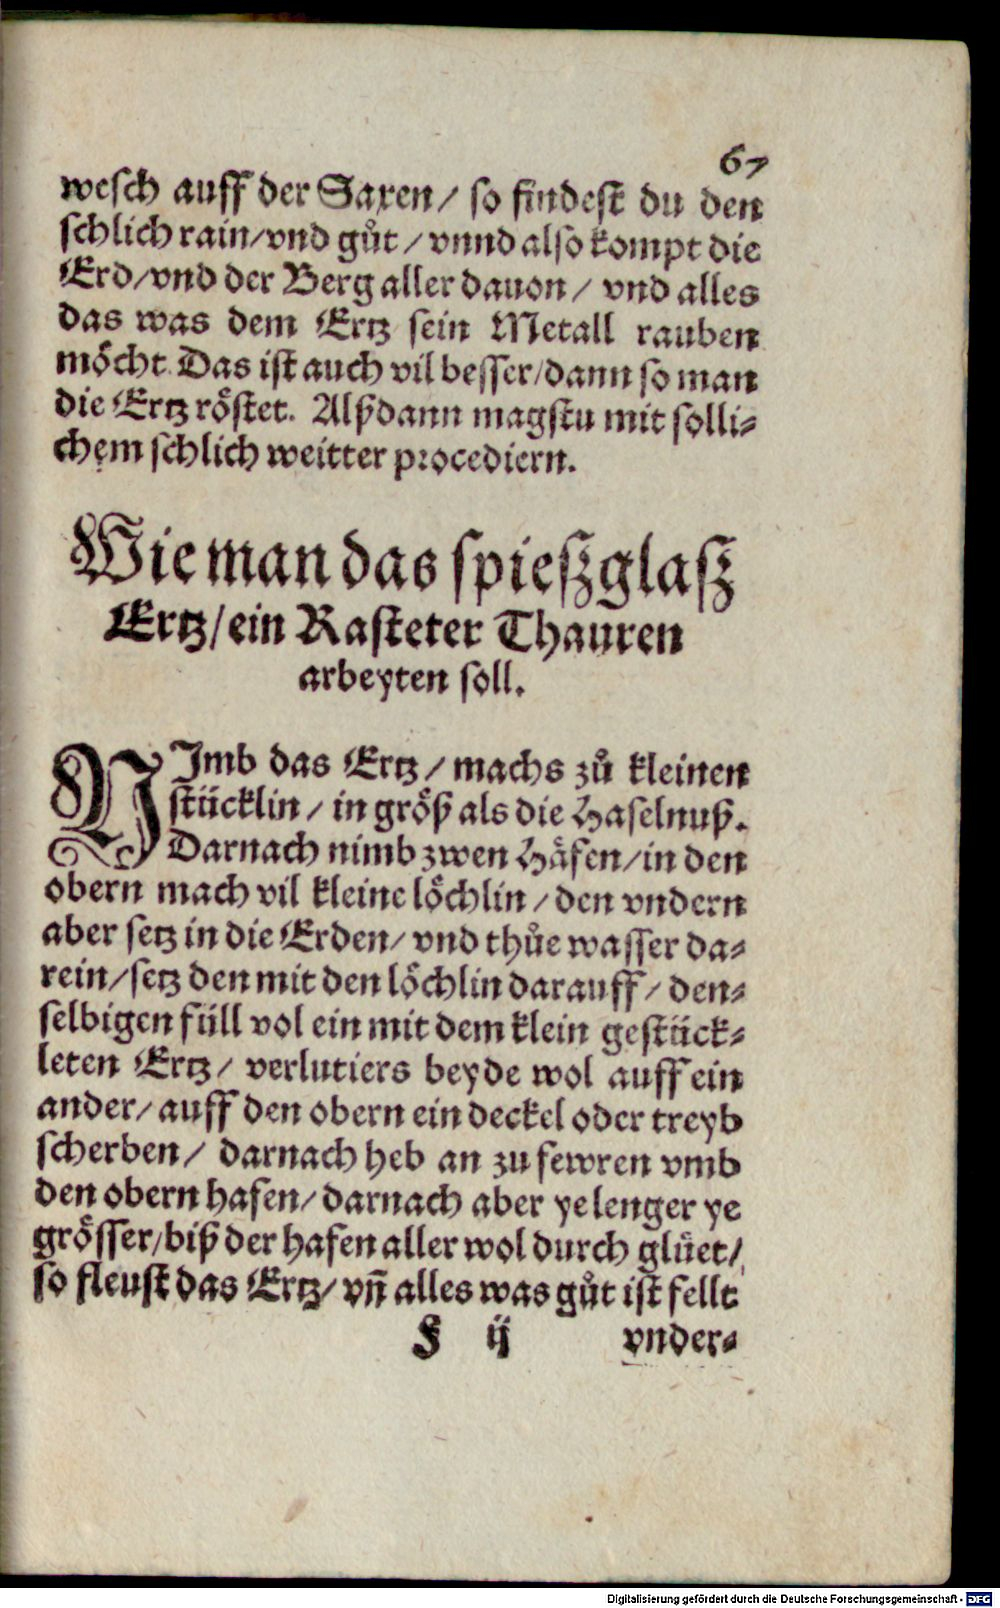 67
wesch auff der Saxen / so findest du den
schlich rain/vnd gůt / vnnd also kompt die
Erd/vnd der Berg aller dauon / vnd alles
das was dem Ertz sein Metall rauben
möcht. Das ist auch vil besser/dann so man
die Ertz röstet. Alßdann magstu mit solli⸗
chem schlich weitter procediern.
Wie man das spieszglasz
Ertz/ein Rasteter Thauren
arbeyten soll.
NImb das Ertz / machs zů kleinen
stücklin / in größ als die Haselnuß.
Darnach nimb zwen Häfen/in den
obern mach vil kleine löchlin / den vndern
aber setz in die Erden/ vnd thůe wasser da⸗
rein/setz den mit den löchlin darauff / den⸗
selbigen füll vol ein mit dem klein gestück⸗
leten Ertz / verlutiers beyde wol auff ein
ander/ auff den obern ein deckel oder treyb
scherben / darnach heb an zu fewren vmb
den obern hafen/ darnach aber ye lenger ye
grösser/biß der hafen aller wol durch glüet/
so fleust das Ertz/ vñ alles was gůt ist fellt
ij vnder⸗
Digitalisierung gefördert durch die Deutsche Forschungsgemeinschaft - DFG